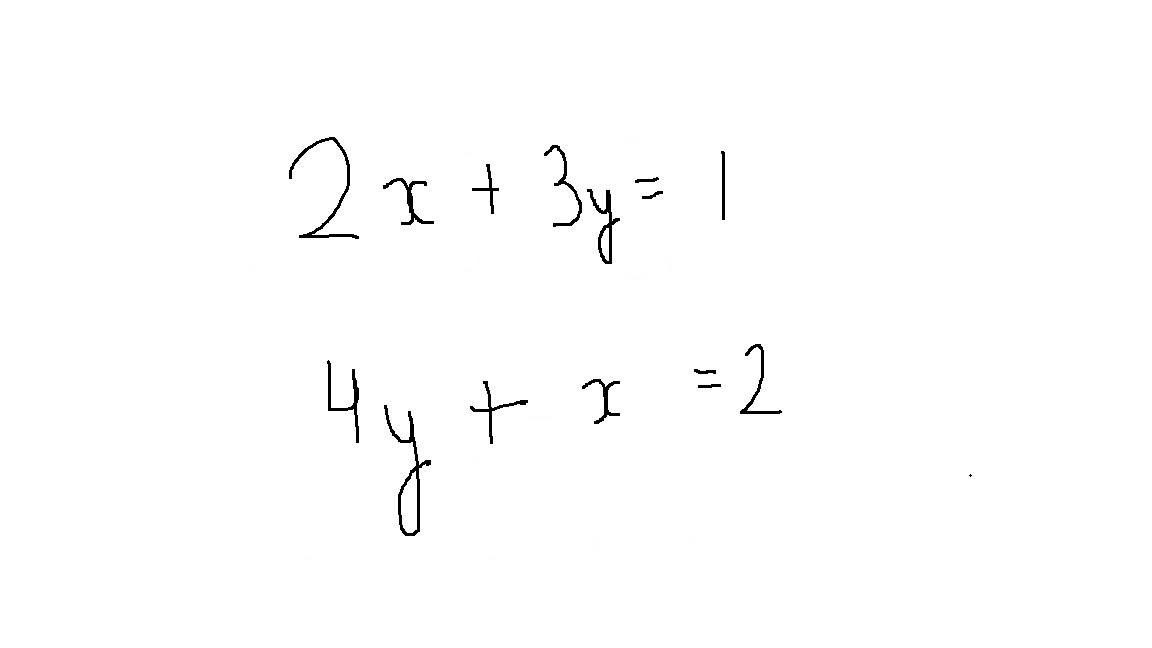 2x + 3y = 1
4y + x = 2